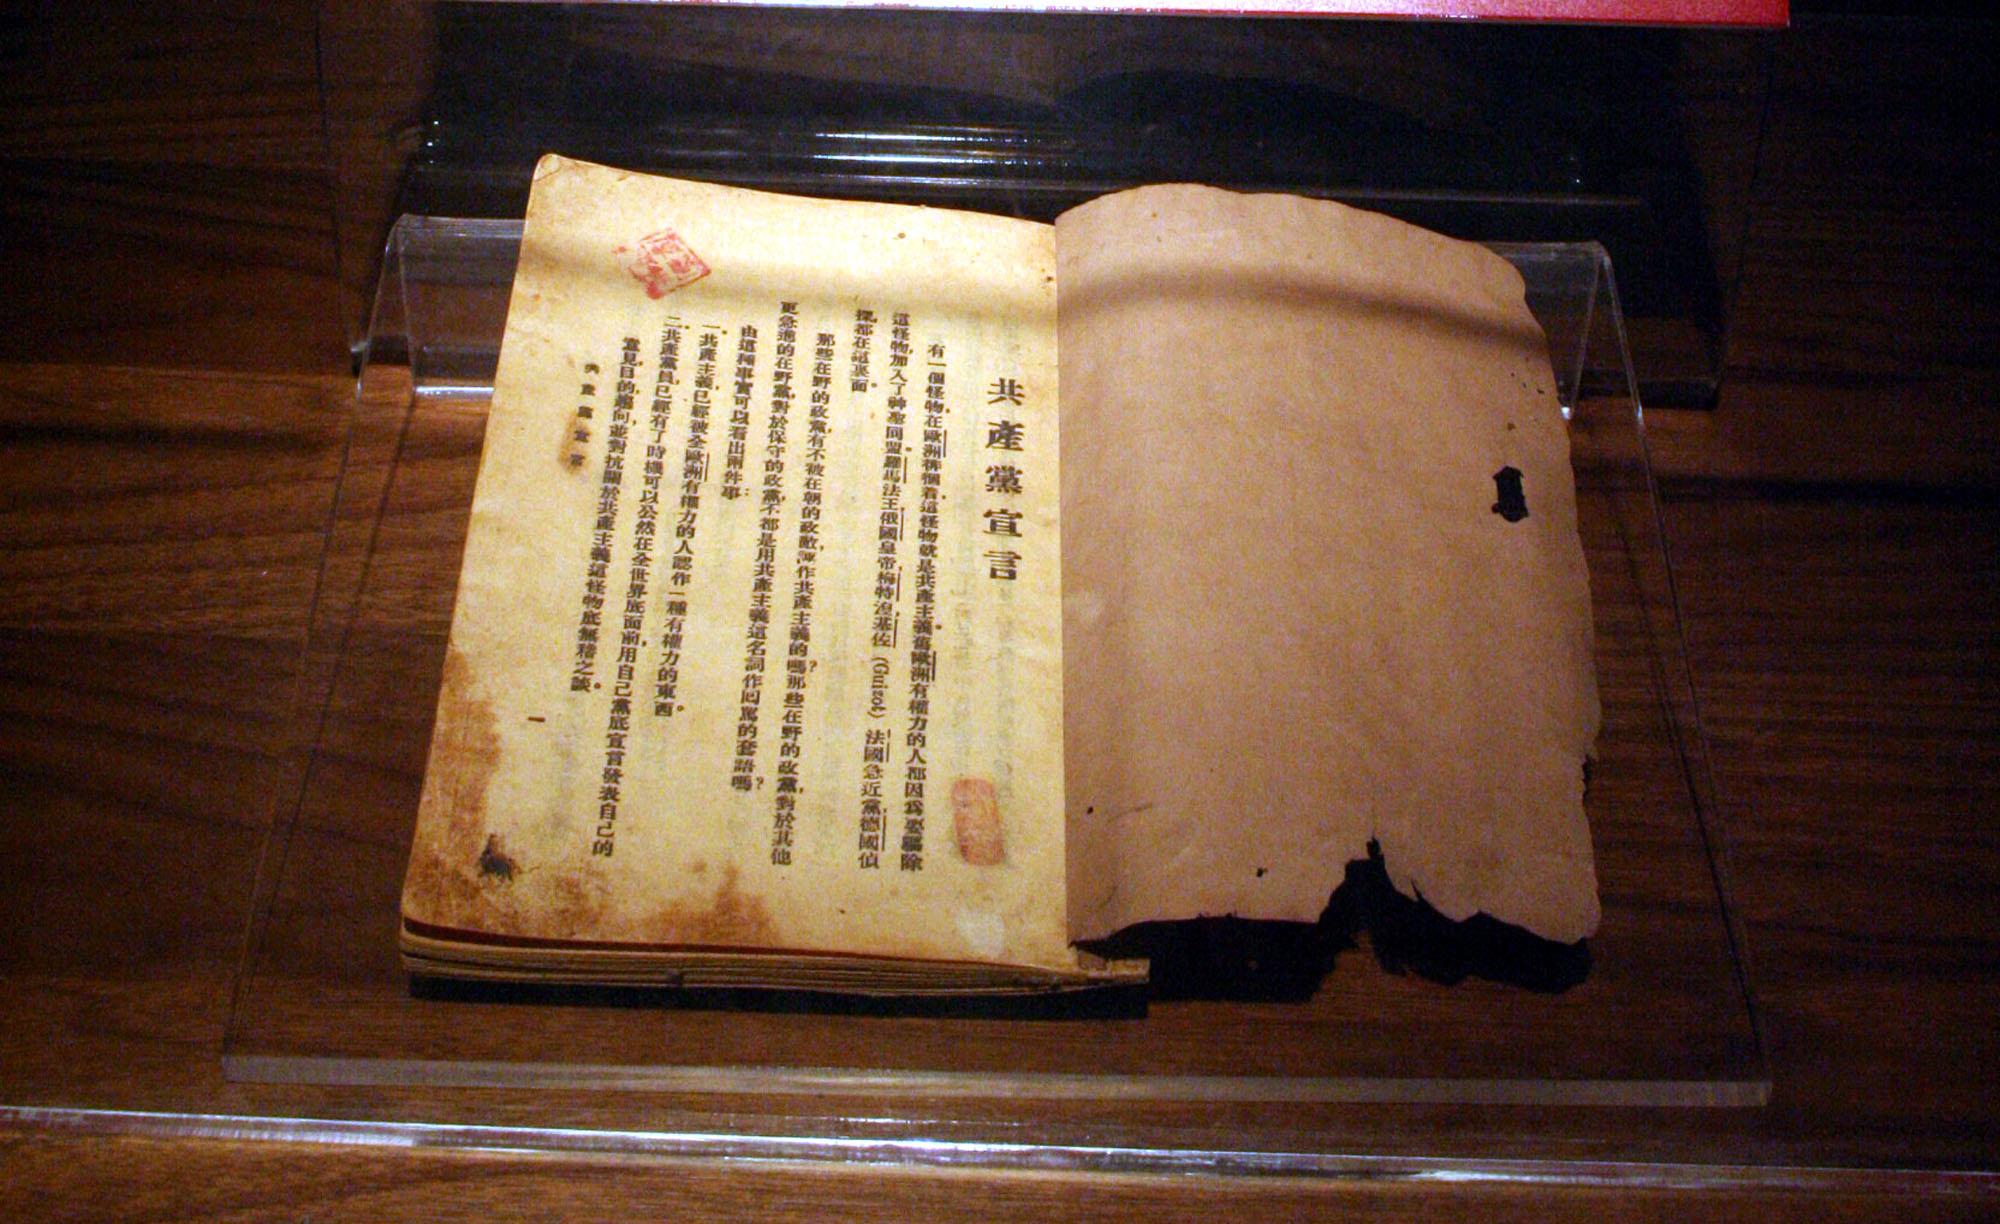 共產黨宣言
有一個怪物，在歐洲徘徊着，這怪物就是共產主義。舊歐洲有權力的人都因為要驅除
這怪物，加入了神聖同盟。羅馬法王，俄國皇帝，梅特涅，基佐（Guizot），法國急近黨，德國偵
探，都在這裏面。
那些在野的政黨，有不被在朝的政敵，誣作共產主義的嗎？那些在野的政黨，對於其他
更急進的在野黨，對於保守的政黨，不都是用共產主義這名詞作回罵的套語嗎？
由這種事實可以看出兩件事：
一。共產主義，已經被全歐洲有權力的人認作一種有權力的東西。
二。共產黨員，已經有了時機可以公然在全世界底面前，用自己黨底宣言發表自己的
意見，目的，趨向，並對抗關於共產主義這怪物底無稽之談。
共產黨宣言
一